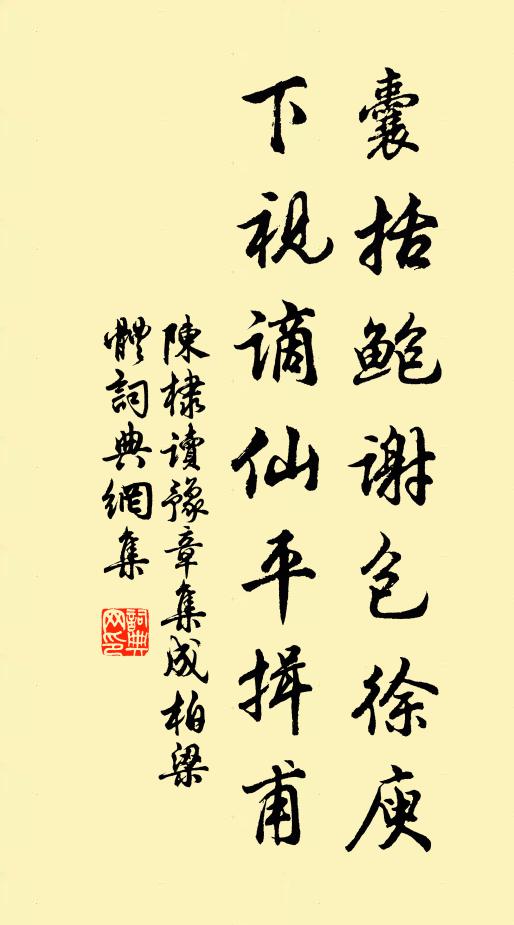 囊括鮑謝包徐庾
下視謫仙平揖甫
陳棣讀豫章集成柏梁
體詞典網集
詞典網印